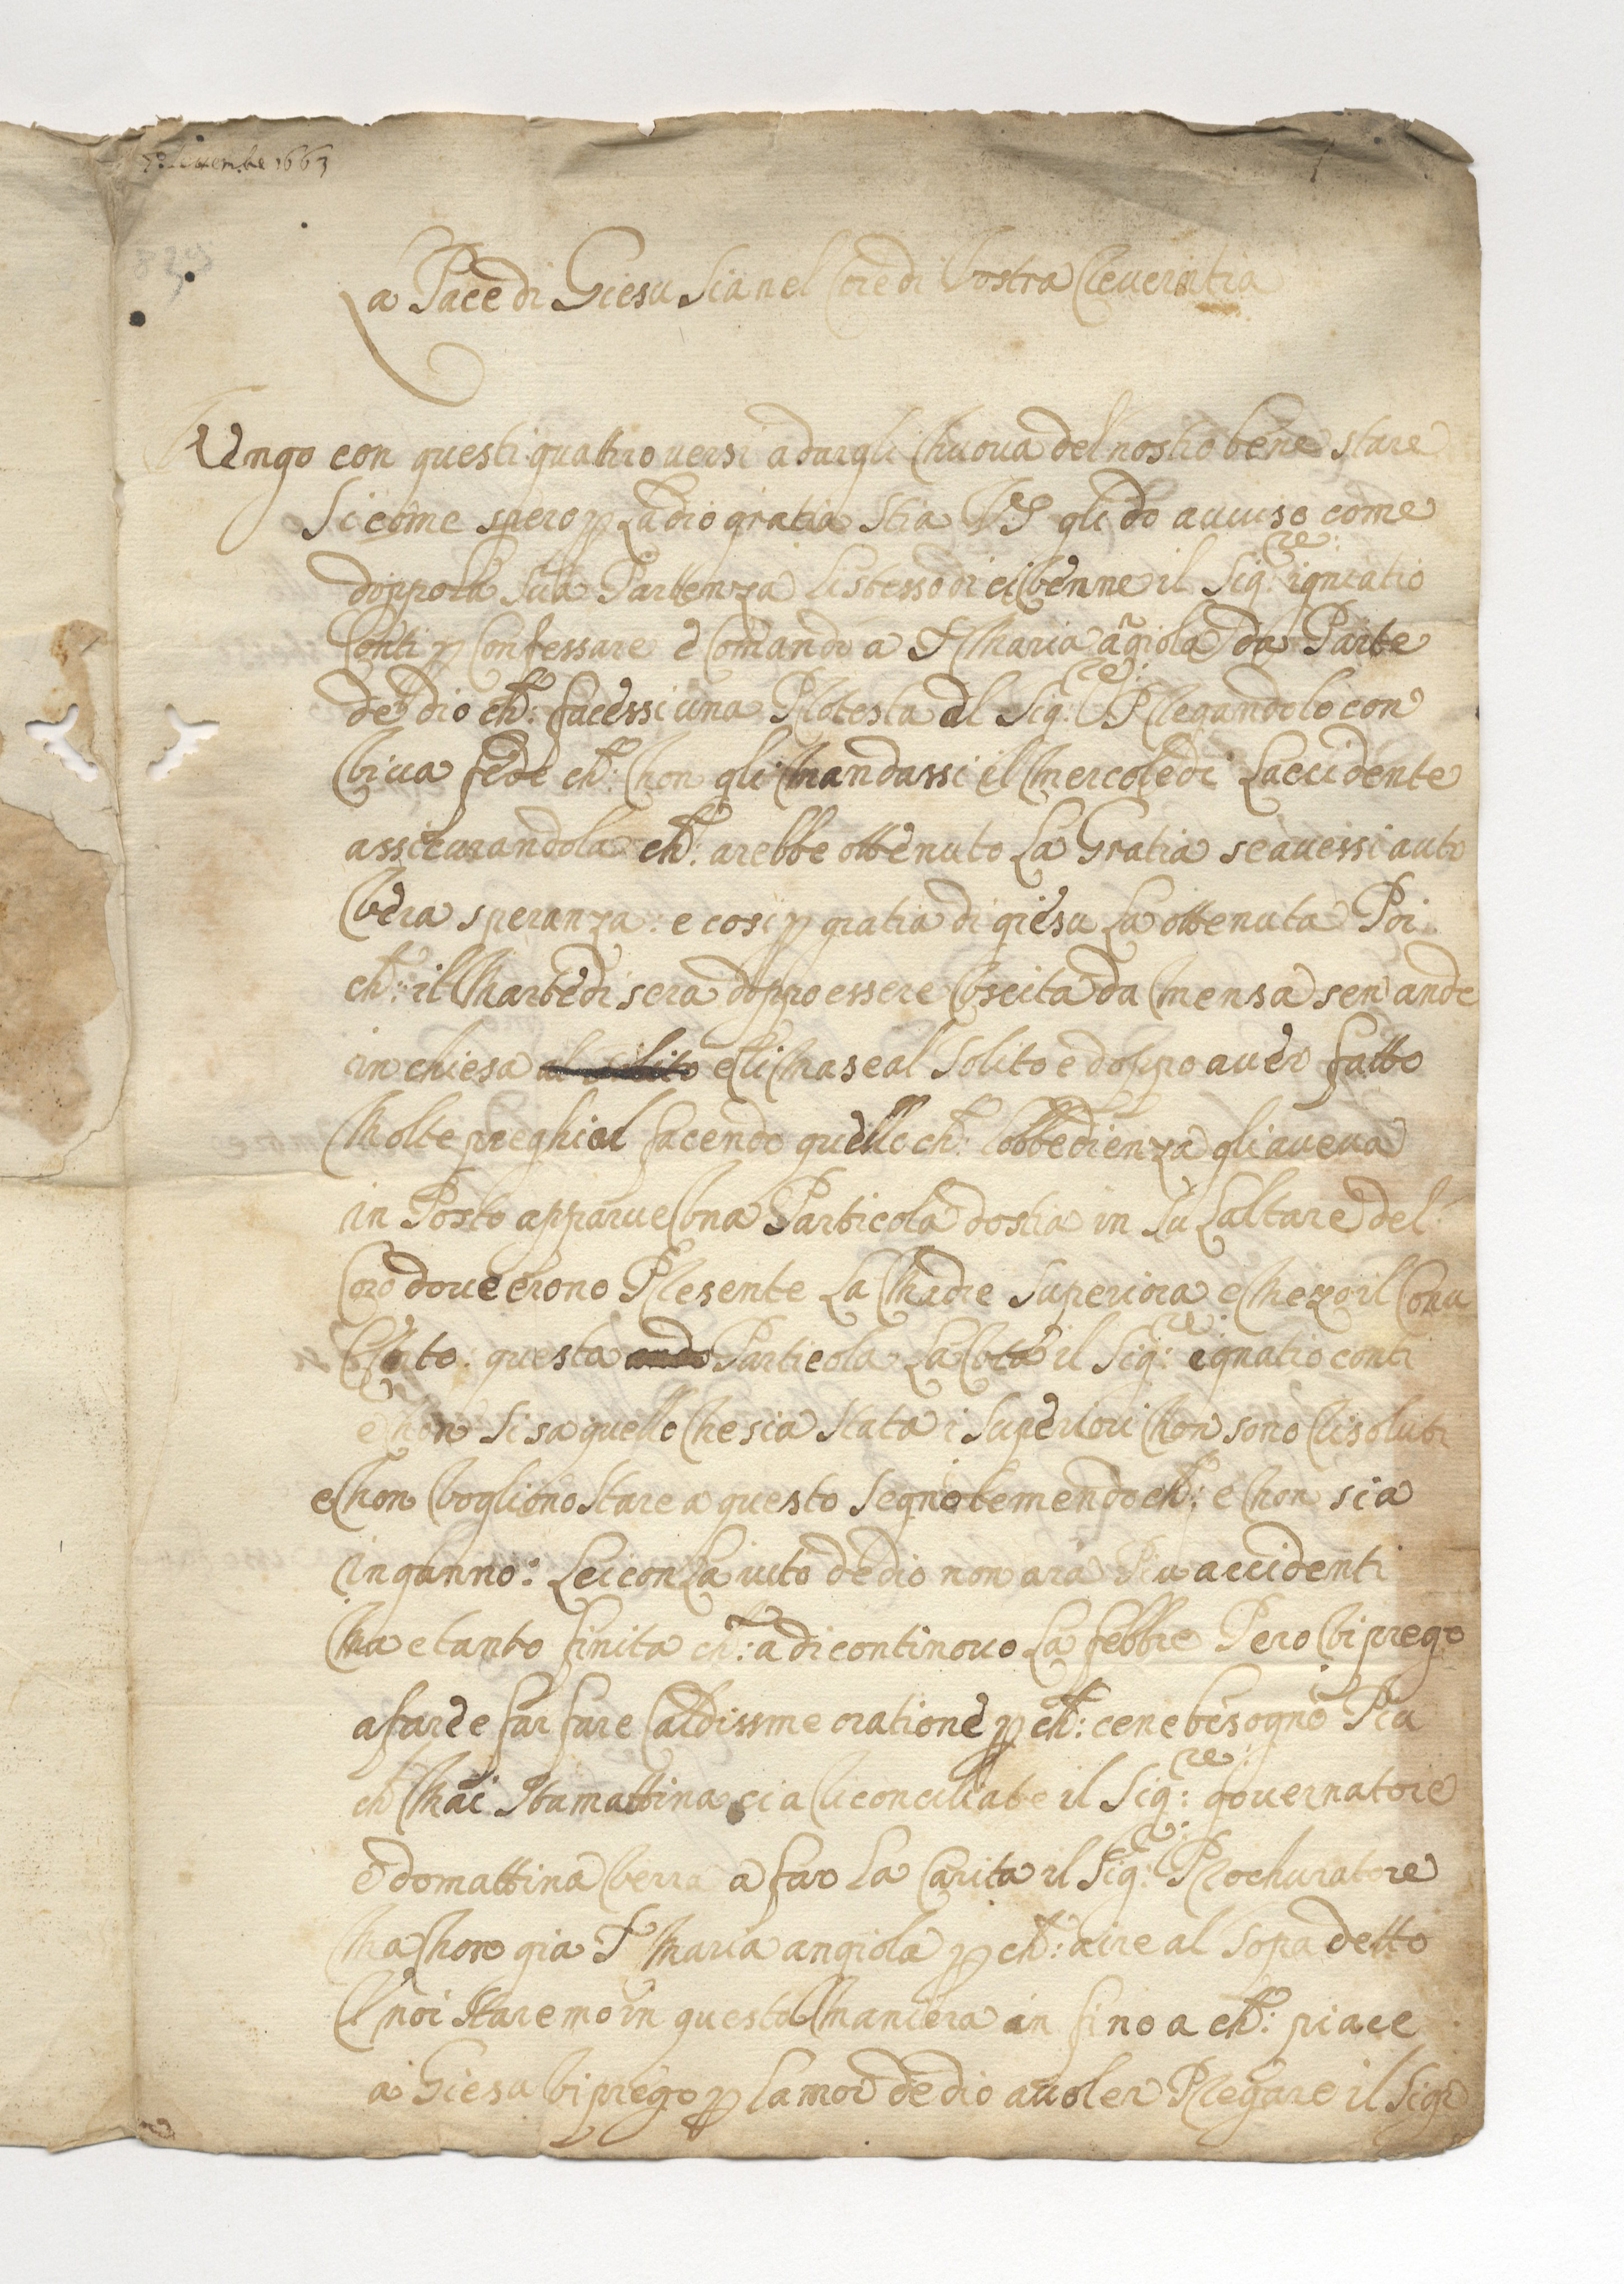 1663
La Pace di Giesu Sia nel Core di Vostra Reverintia
Vengo con questi quattro versi a dargli nuova del nostro bene stare
Si come spero p La dio gratia Stia VS gli do avviso come
doppo la Sua Partenza Listesso di ci venne il Sig:re ignatio
Conti p Confessare e Comando a S Maria agiola da Parte
de dio ch: facessi una Protesta al Sig:re Pregandolo con
viva fede ch: non gli mandassi il mercoledi Laccidente
assicurandola ch: arebbe ottenuto La Gratia se avessi auto
vera speranza: e cosi p gratia di giesu La ottenuta Poi
ch: il Martedi sera doppo essere Vscita da mensa sen ande
in chiesa e li mase al Solito e doppo aver fatto
Molte preghier facendo quello ch: lobbedienza gli aveva
in Posto apparve Vna Particola dostia in Su Laltare del
Coro dove erono Presente La Madre Superiora e mezo il Conv
ento: questa Particola La Colta il Sig:re ignatio conti
e non Si sa quello che sia Stata i Superiori non sono risoluti
e non vogliono Stare a questo Segno temendo ch: e non sia
inganno: Lei con La iuto de dio non ara Piu accidenti
Ma e tanto finita ch: a di continovo La febbre Pero vi prego
a fare e far fare Caldissme oratione p ch: cene bisogno Piu
ch Mai Stamattina cia riconciliate il Sig:re governatore
e domattina verra a far La Carita il Sig:re Prochuratore
Ma non gia S Maria angiola p ch: aire al Sopa detto
E noi Staremo in questa Maniera in fino a ch: piace
a Giesu vi prego p Lamor de dio avoler Pregare il Sigr